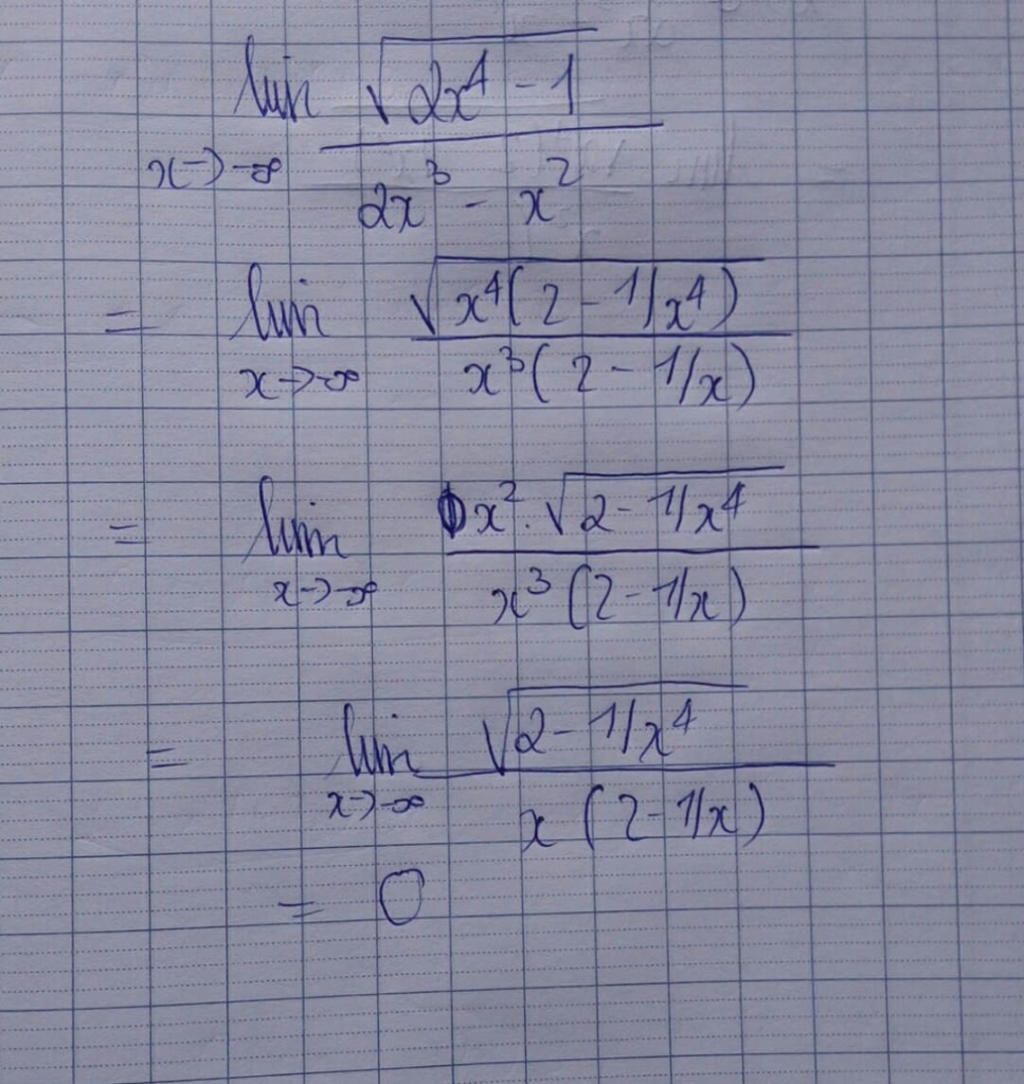 lim √(2x⁴ - 1) / (2x³ - x²) x→-∞
= lim √(x⁴(2 - 1/x⁴)) / (x³(2 - 1/x)) x→-∞
= lim x² · √(2 - 1/x⁴) / (x³(2 - 1/x)) x→-∞
= lim √(2 - 1/x⁴) / (x(2 - 1/x)) x→-∞
= 0